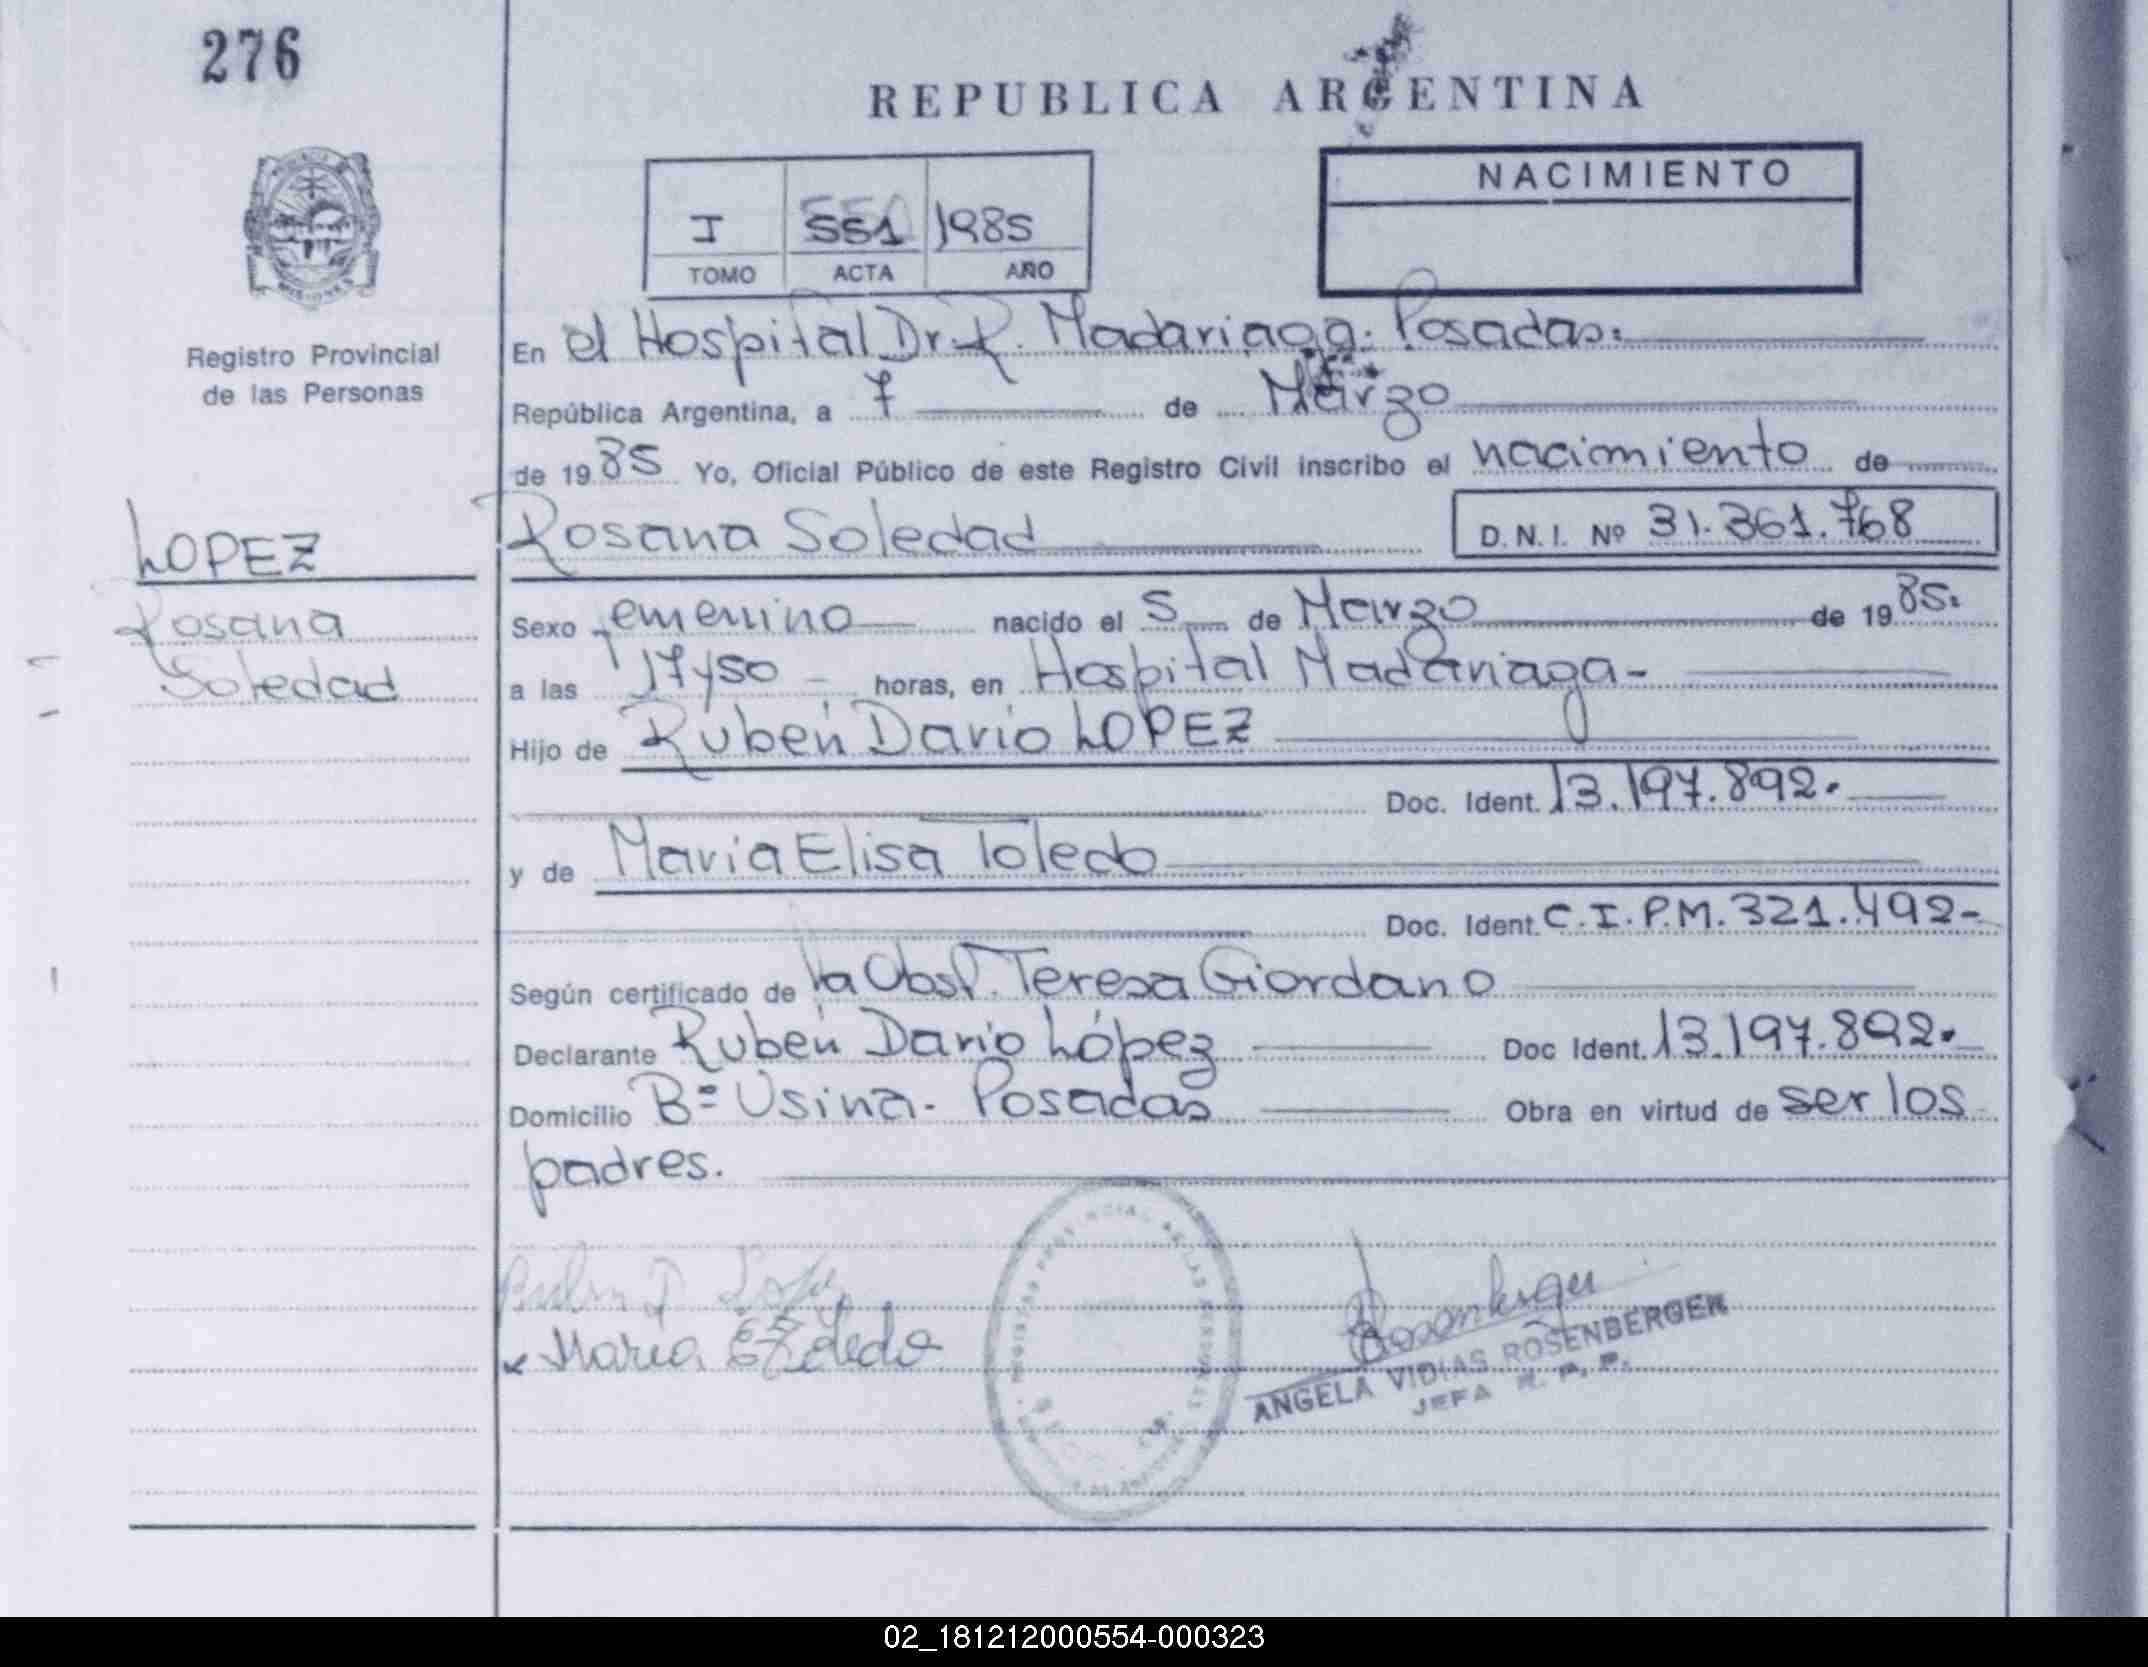 276
REPUBLICA ARGENTINA
NACIMIENTO
I 551 1985
TOMO ACTA AÑO
Registro Provincial
de las Personas
En el Hospital Dr. R. Madariaga. Posadas.
República Argentina, a 7 de Marzo
de 1985 Yo, Oficial Público de este Registro Civil inscribo el nacimiento de
LOPEZ
Rosana
Soledad
Rosana Soledad D.N.I. Nº 31.361.768
Sexo Femenino nacido el 5 de Marzo de 1985.
a las 17y50 - horas, en Hospital Madariaga-
Hijo de Rubén Darío LOPEZ
Doc. Ident. 13.197.892.
y de María Elisa Toledo
Doc. Ident. C.I.P.M. 321.492-
Según certificado de la Obst. Teresa Giordano
Declarante Rubén Darío López Doc Ident. 13.197.892.
Domicilio Bº Usina- Posadas Obra en virtud de ser los
padres.
Ruben D Lopez
Maria E Toledo
Rosenberger
ANGELA VIDIAS ROSENBERGER
JEFA R. P. P.
02_181212000554-000323